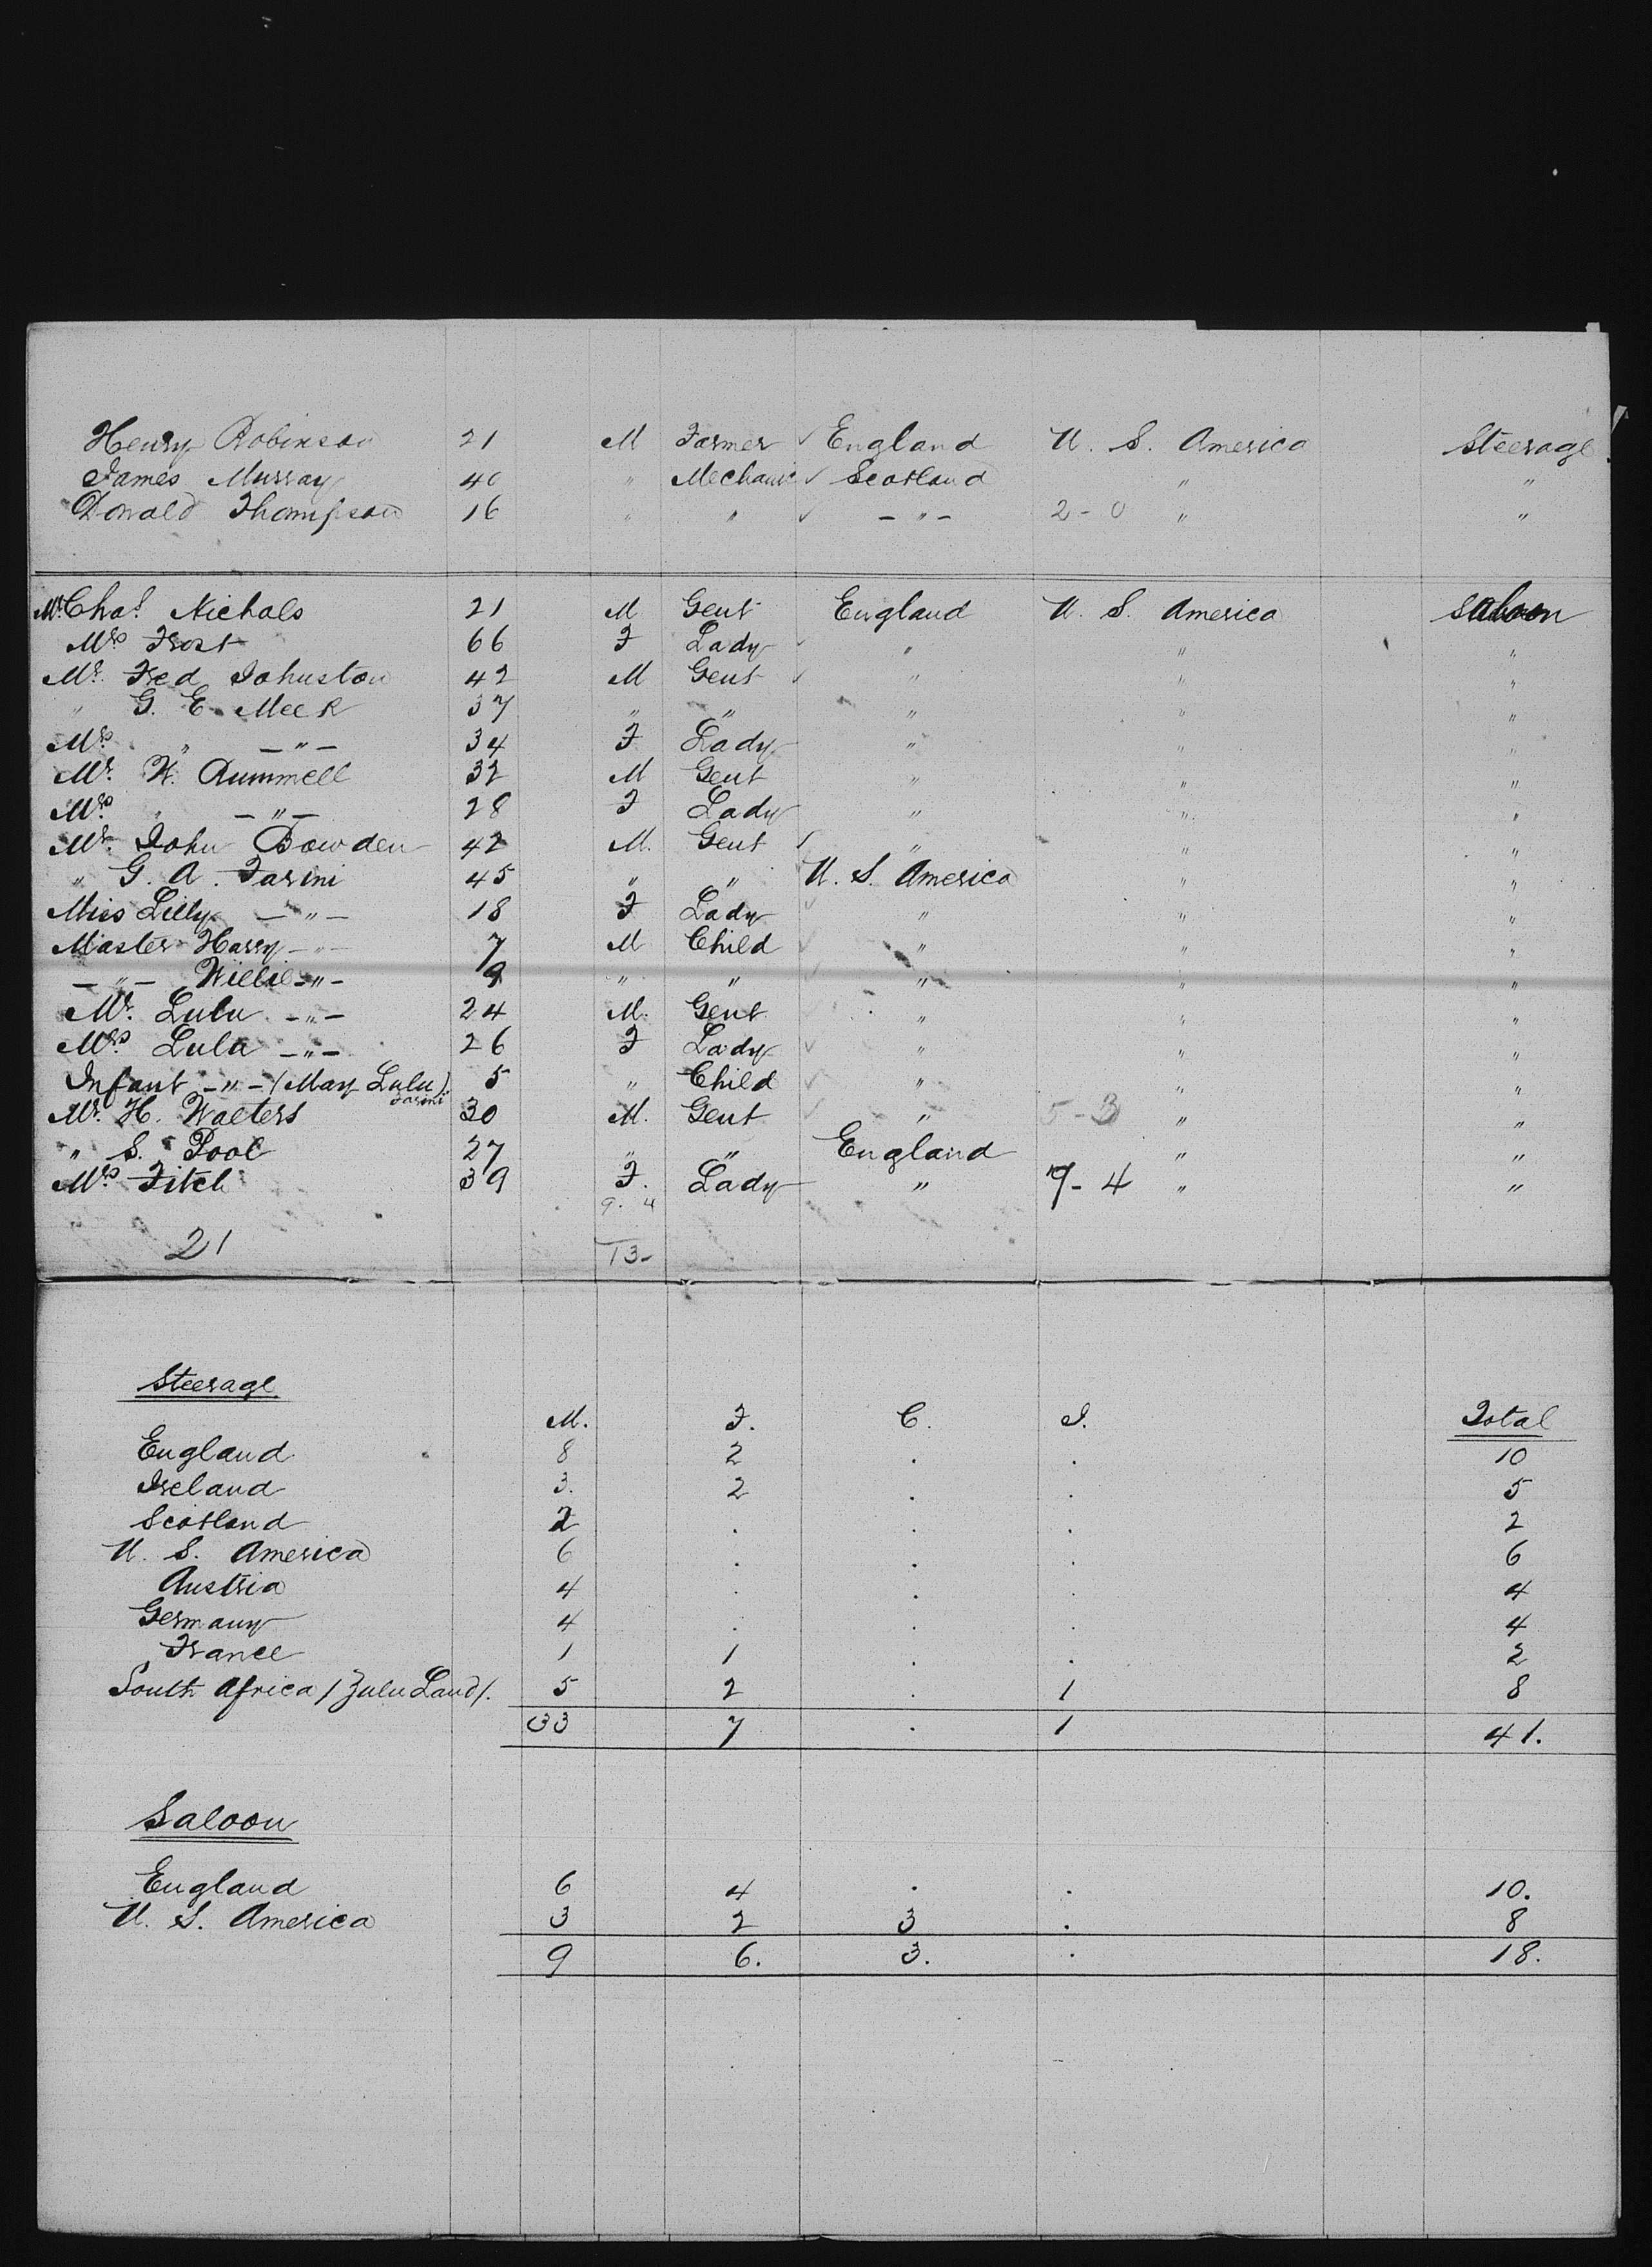 Henry Robinson 21 M Farmer ✓ England U. S. America Steerage
James Murray 40 " Mechanic ✓ Scotland " "
Donald Thompson 16 " " ✓ – " – 2 - 0 " "
Mr. Chas. Nichols 21 M Gent England U. S. America Saloon
Mrs Frost 66 F Lady ✓ " " "
Mr. Fred Johnston 42 M Gent ✓ " " "
" G. E. Meek 37 " " " " "
Mrs " – " – 34 F Lady " " "
Mr. W. Rummell 32 M Gent " " "
Mrs " – " – 28 F Lady " " "
Mr. John Bowden 42 M. Gent ✓ " " "
" G. A. Farini 45 " " U. S. America " "
Miss Lilly – " – 18 F Lady ✓ " " "
Master Harry – " – 7 M Child ✓ " " "
– " – Willie – " – 9 " " ✓ " " "
Mr. Lulu – " – 24 M. Gent " " "
Mrs. Lula – " – 26 F Lady ✓ " " "
Infant – " – (May Lulu) Farini 5 " Child ✓ " " "
Mr. H. Walters 30 M. Gent ✓ " 5 - 3 " "
" S. Pool 27 " " England " "
Mrs Fitch 39 F. Lady " 9 - 4 " "
9. 4
21 13-
Steerage
M. F. C. I. Total
England 8 2 . . 10
Ireland 3. 2 . . 5
Scotland 2 . . . 2
U. S. America 6 . . . 6
Austria 4 . . . 4
Germany 4 . . . 4
France 1 1 . . 2
South Africa / Zulu Land /. 5 2 . 1 8
33 7 . 1 41.
Saloon
England 6 4 . . 10.
U. S. America 3 2 3 . 8
9 6. 3. . 18.